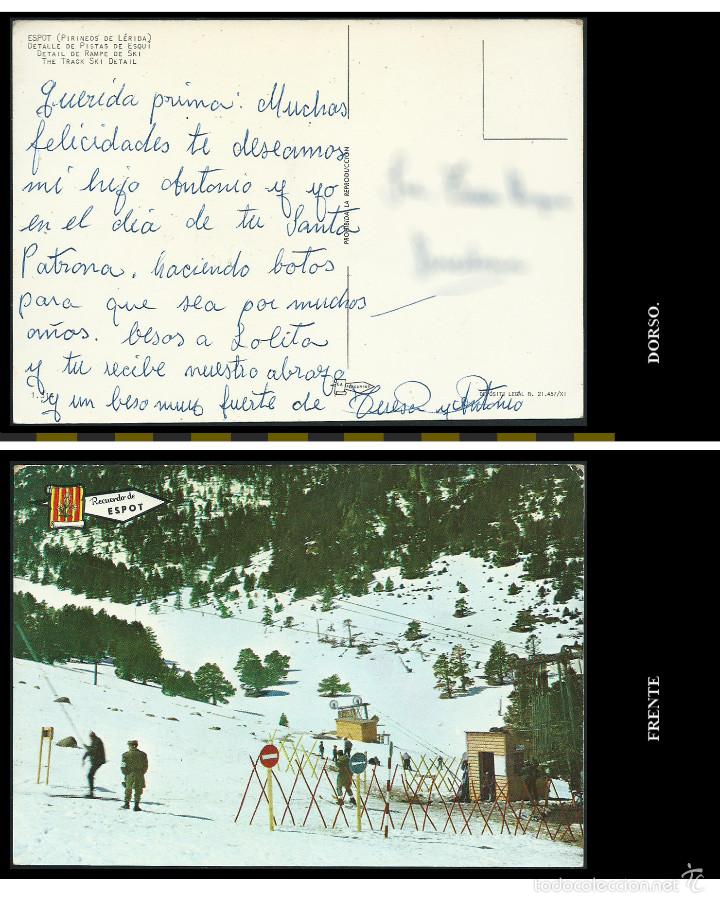 ESPOT (PIRINEOS DE LÉRIDA)
DETALLE DE PISTAS DE ESQUÍ
DETAIL DE RAMPE DE SKI
THE TRACK SKI DETAIL
Querida prima: Muchas
felicidades te deseamos
mi hijo Antonio y yo
en el día de tu Santa
Patrona, haciendo botos
para que sea por muchos
años. besos a Lolita
y tu recibe nuestro abrazo
y un beso muy fuerte de Teresa y Antonio
PROHIBIDA LA REPRODUCCIÓN
DEPÓSITO LEGAL B. 21.457/XI
DORSO.
Recuerdo de
ESPOT
FRENTE
todocoleccion.net
tc